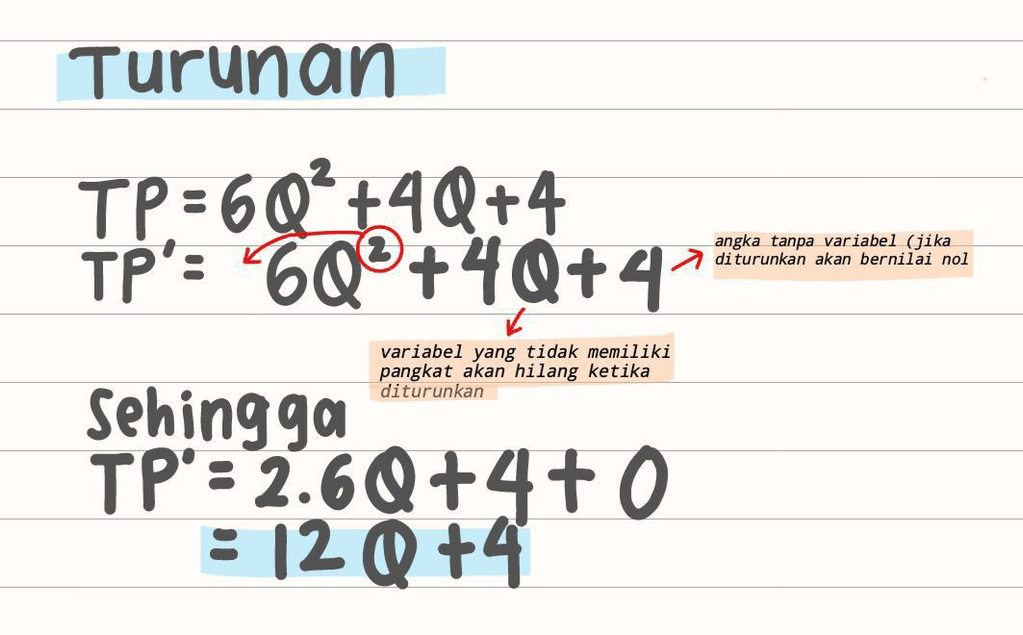 Turunan
TP = 6Q² + 4Q + 4
TP' = 6Q² + 4Q + 4
angka tanpa variabel (jika
diturunkan akan bernilai nol
variabel yang tidak memiliki
pangkat akan hilang ketika
diturunkan
Sehingga
TP' = 2.6Q + 4 + 0
= 12Q + 4